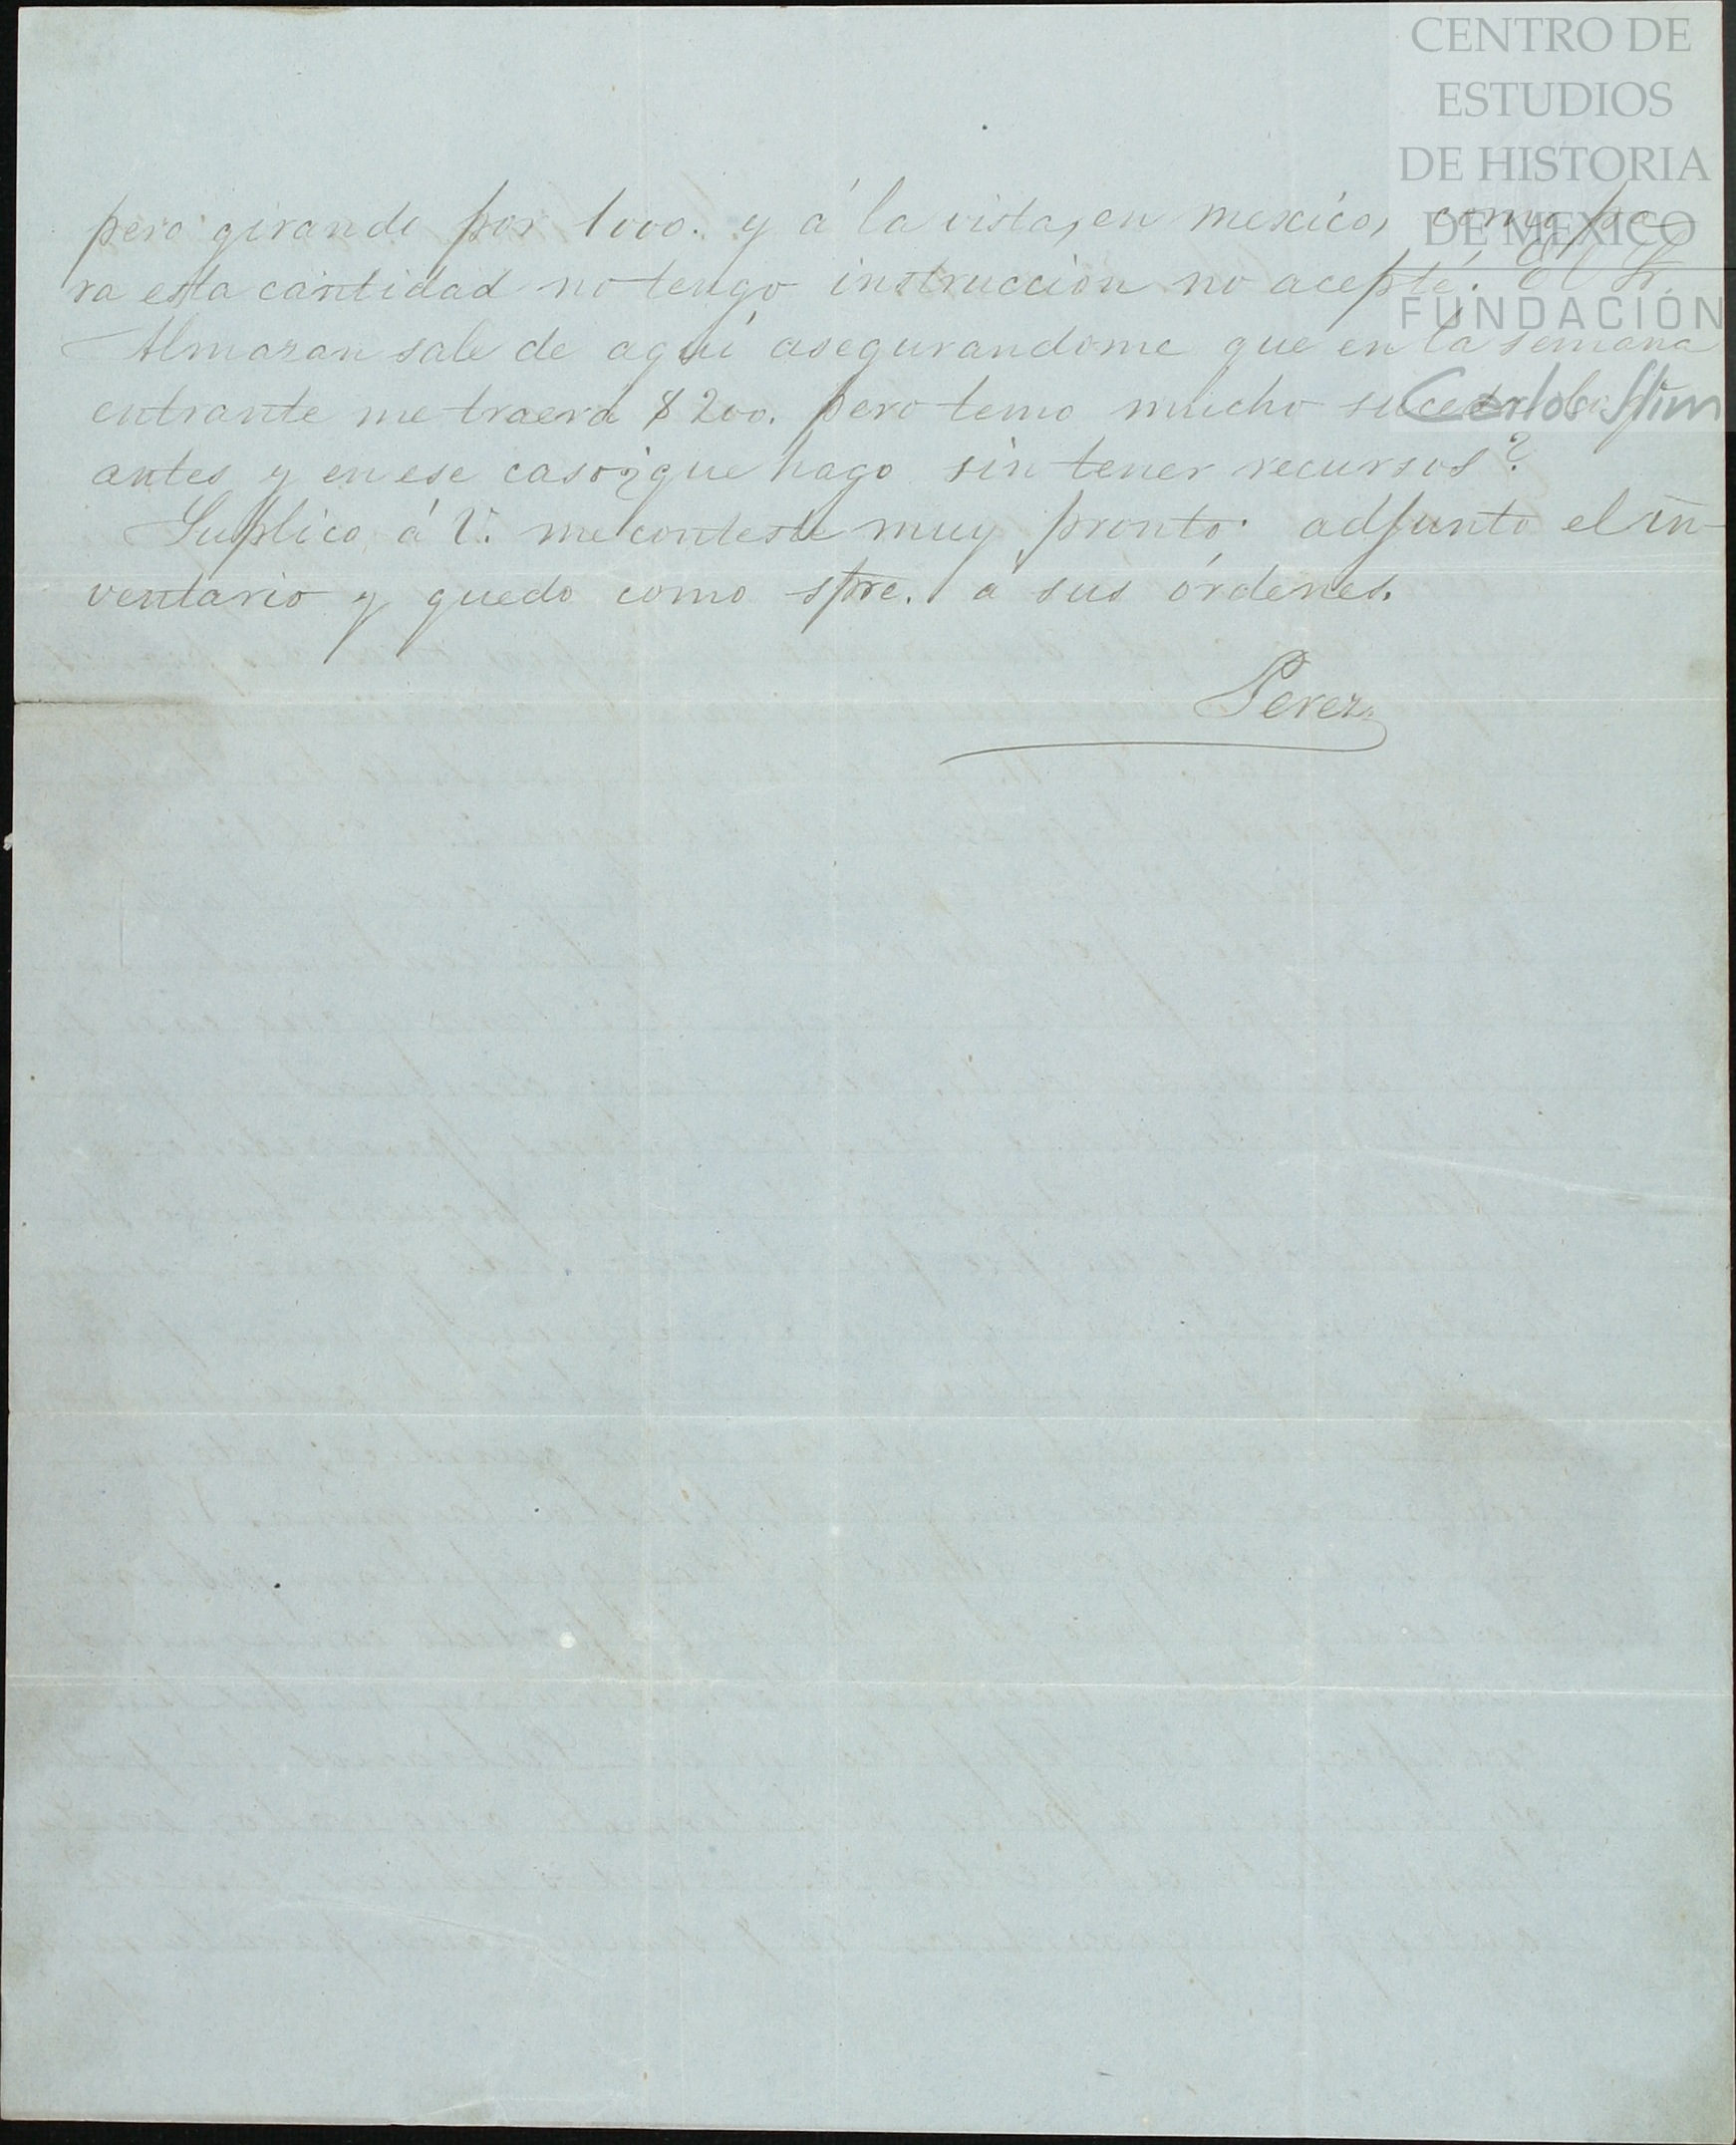 CENTRO DE
ESTUDIOS
DE HISTORIA
DE MEXICO
FUNDACIÓN
Carlos Slim
pero girando por 1000. y á la vista, en mexico, como pa-
ra esta cantidad no tengo instruccion no acepté. El Sr.
Almazan sale de aquí asegurandome que en la semana
entrante me traerá $200. pero temo mucho suceda
antes y en ese caso ¿que hago sin tener recursos?
Suplico á V. me conteste muy pronto: adjunto el in-
ventario y quedo como spre. á sus órdenes.
Perez